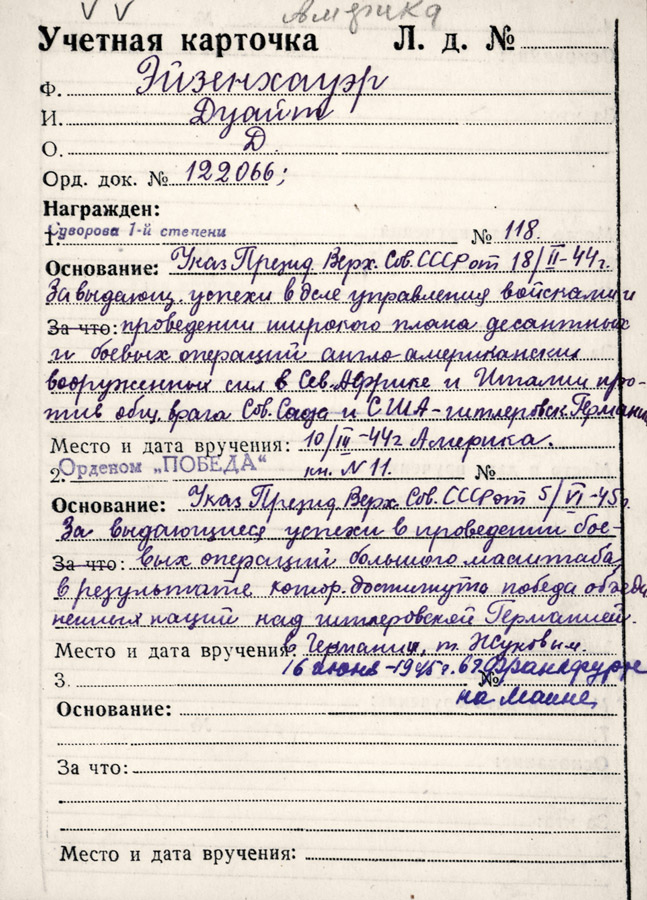 Америка
Учетная карточка Л. д. №
Ф. Эйзенхауэр
И. Дуайт
О. Д.
Орд. док. № 122066;
Награжден:
1. Суворова 1-й степени № 118.
Основание: Указ Презид. Верх. Сов. СССР от 18/II-44г.
За выдающ. успехи в деле управления войсками и
За что: проведении широкого плана десантных
и боевых операций англо американских
вооруженных сил в Сев. Африке и Италии про-
тив общ. врага Сов. Союза и США - гитлеровск. Германии
Место и дата вручения: 10/III-44г Америка.
2. Орденом „ПОБЕДА" кн. N 11. №
Основание: Указ Презид. Верх. Сов. СССР от 5/VI-45г.
За выдающиеся успехи в проведении бое-
За что: вых операций большого масштаба,
в результате котор. достигнута победа объеди
ненных наций над гитлеровской Германией.
Место и дата вручения: в Германии, т. Жуковым.
16 июня-1945г. в г. Франкфурте
3. №
на Майне,
Основание:
За что:
Место и дата вручения: